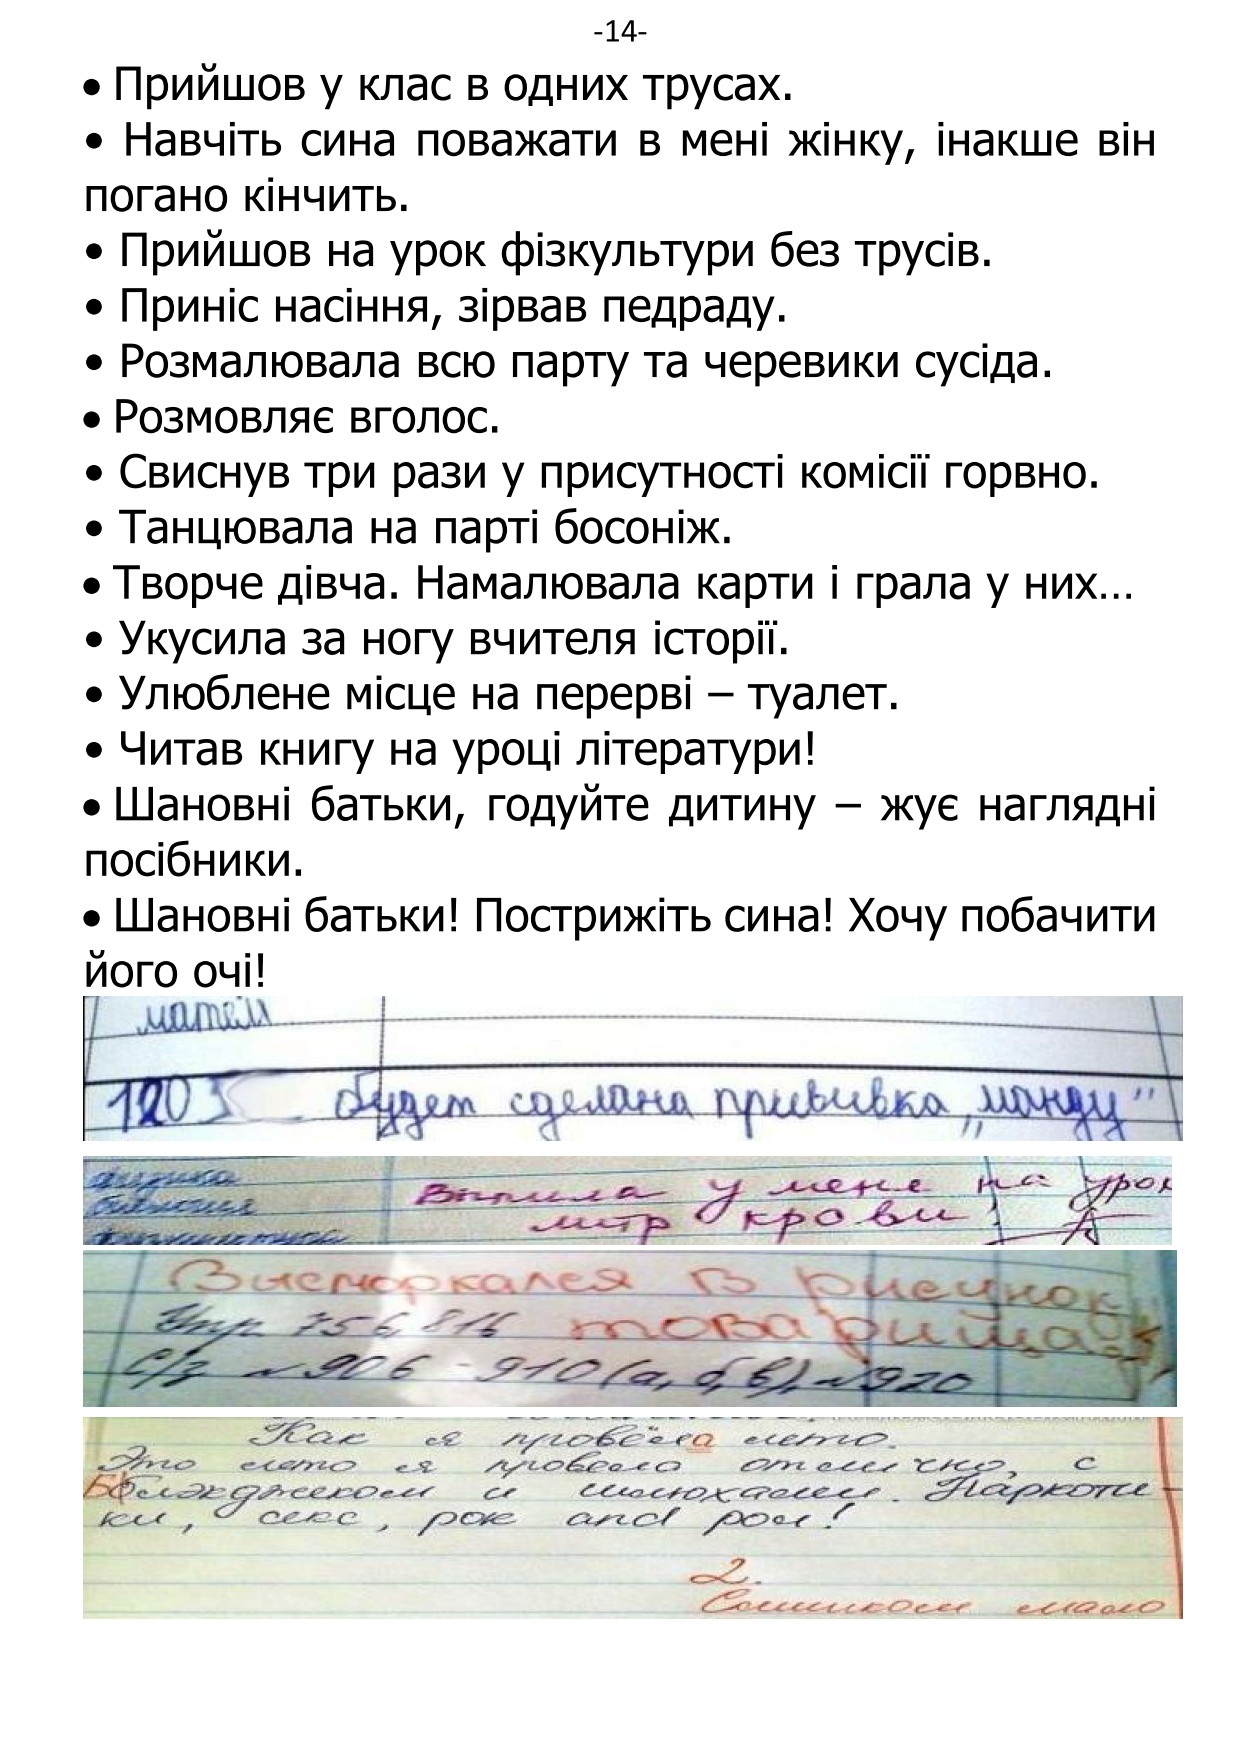 -14-
• Прийшов у клас в одних трусах.
• Навчіть сина поважати в мені жінку, інакше він
погано кінчить.
• Прийшов на урок фізкультури без трусів.
• Приніс насіння, зірвав педраду.
• Розмалювала всю парту та черевики сусіда.
• Розмовляє вголос.
• Свиснув три рази у присутності комісії горвно.
• Танцювала на парті босоніж.
• Творче дівча. Намалювала карти і грала у них…
• Укусила за ногу вчителя історії.
• Улюблене місце на перерві – туалет.
• Читав книгу на уроці літератури!
• Шановні батьки, годуйте дитину – жує наглядні
посібники.
• Шановні батьки! Пострижіть сина! Хочу побачити
його очі!
матем
будет сделана прививка „манду"
физика
Випила у мене на урок
биология
литр крови!
Висморкался в рисунок
Упр. 756, 816 товарища!
С/з №906 - 910 (а, б, в), №920
Как я провела лето.
Это лето я провела отлично, с
Блэкджеком и шлюхами. Наркоти-
ки, секс, рок and рол!
2.
Слишком мало